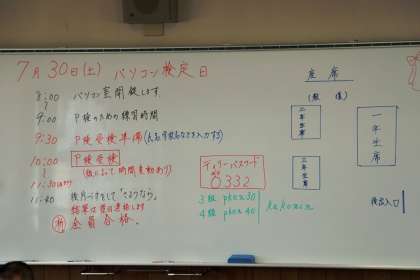 7月30日(土) パソコン検定日
8:00 パソコン室開錠します
9:00 P検のための練習時間
9:30 P検受検準備(氏名学校名などを入力する)
10:00 P検受検
(級によって時間変動あり)
11:30
11:40 後片づけをして「さようなら」
結果は翌日連絡します
祈 全員合格。
ティリーパスワード
0332
3級 pk0x30
4級 pk0x40
座席
(教壇)
二年生席
三年生席
一年生席
後出入口